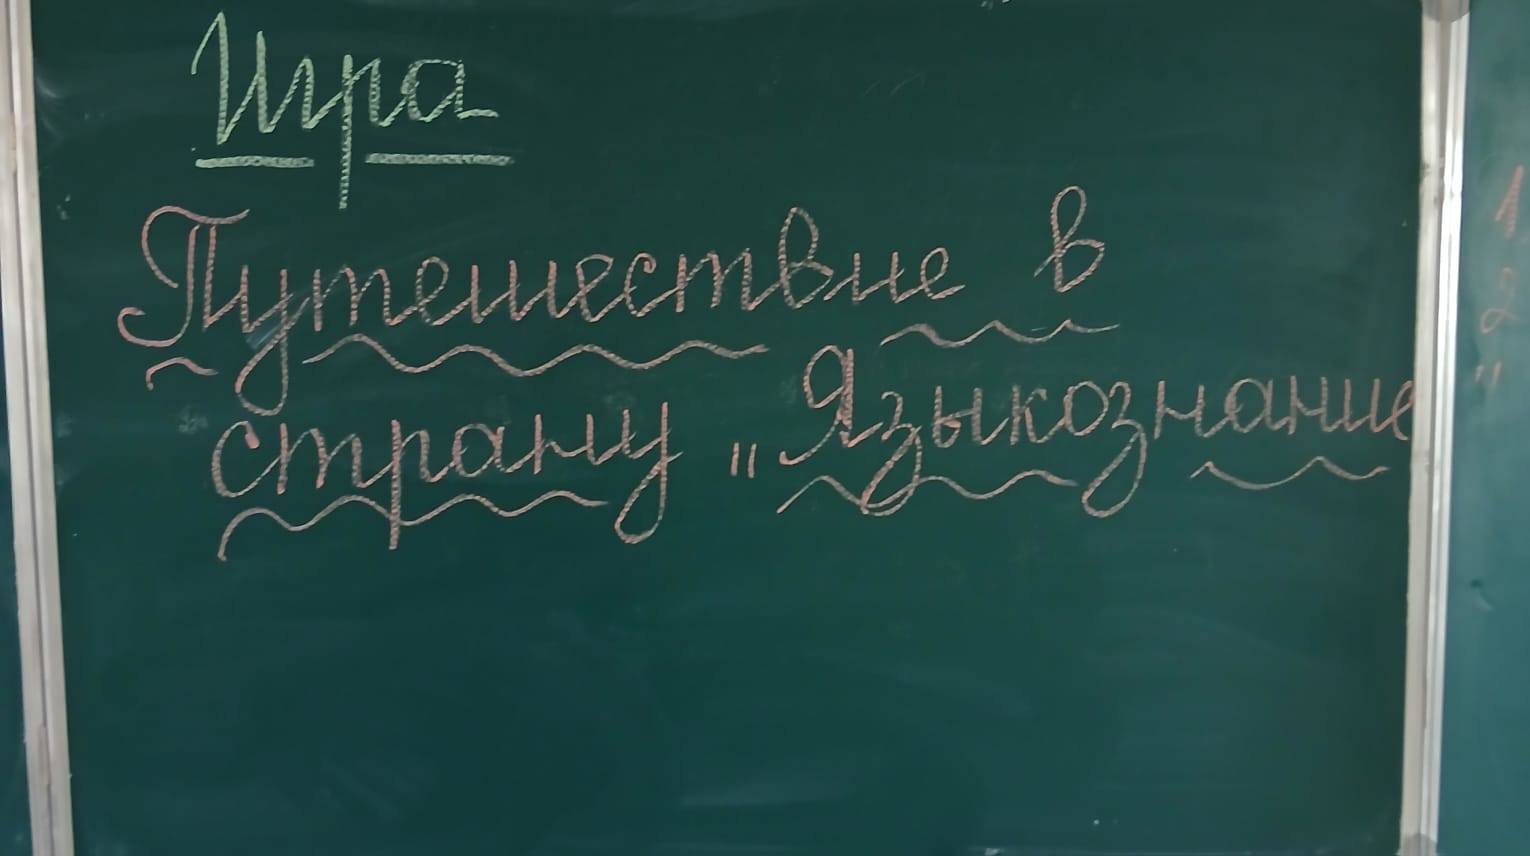 Игра
Путешествие в
страну „Языкознание
1
2
"